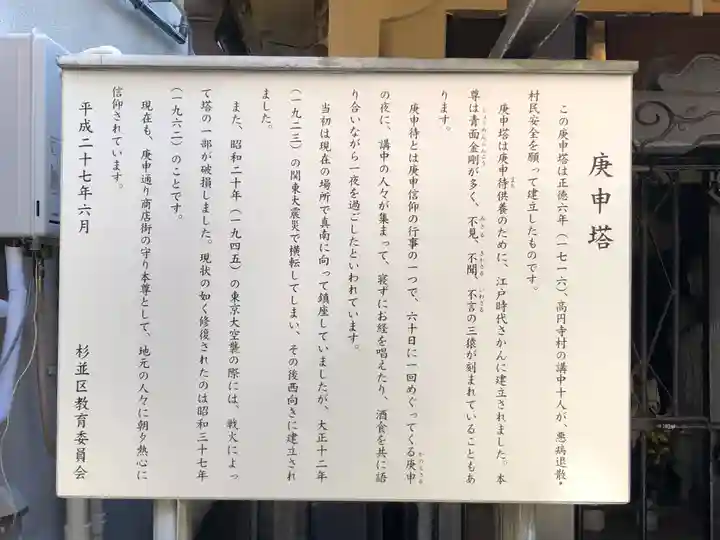 庚申塔
この庚申塔は正徳六年（一七一六）、高円寺村の講中十人が、悪病退散・
村民安全を願って建立したものです。
庚申塔は庚申待供養のために、江戸時代さかんに建立されました。本
尊は青面金剛が多く、不見、不聞、不言の三猿が刻まれていることもあ
ります。
庚申待とは庚申信仰の行事の一つで、六十日に一回めぐってくる庚申
の夜に、講中の人々が集まって、寝ずにお経を唱えたり、酒食を共に語
り合いながら一夜を過ごしたといわれています。
当初は現在の場所で真南に向って鎮座していましたが、大正十二年
（一九二三）の関東大震災で横転してしまい、その後西向きに建立され
ました。
また、昭和二十年（一九四五）の東京大空襲の際には、戦火によっ
て塔の一部が破損しました。現状の如く修復されたのは昭和三十七年
（一九六二）のことです。
現在も、庚申通り商店街の守り本尊として、地元の人々に朝夕熱心に
信仰されています。
平成二十七年六月
杉並区教育委員会